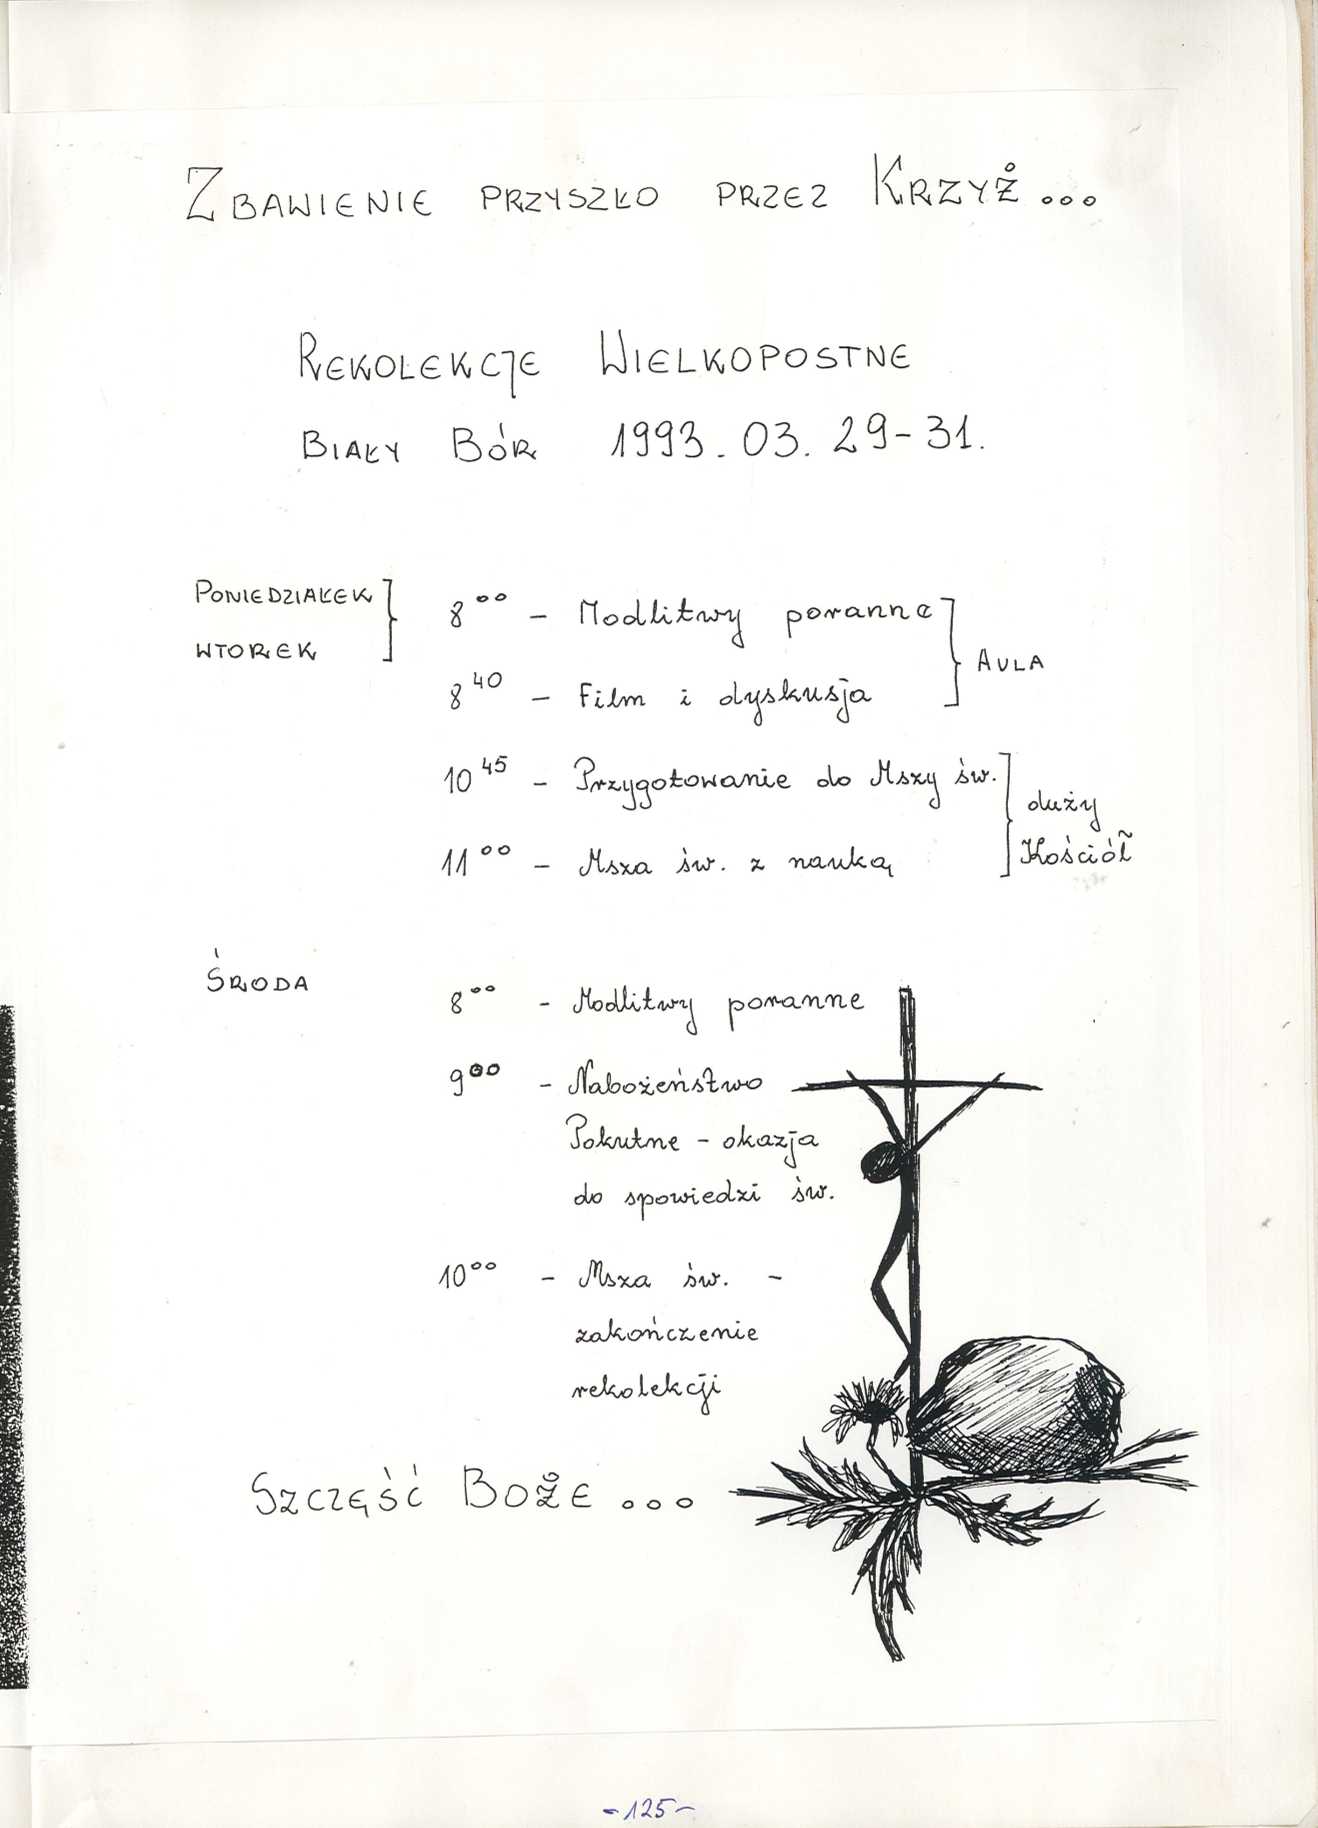 Zbawienie przyszło przez Krzyż...
Rekolekcje Wielkopostne
Biały Bór 1993.03.29-31.
Poniedziałek
wtorek
8⁰⁰ - Modlitwy poranne
8⁴⁰ - Film i dyskusja
Aula
10⁴⁵ - Przygotowanie do Mszy św.
11⁰⁰ - Msza św. z nauką
duży
Kościół
Środa
8⁰⁰ - Modlitwy poranne
9⁰⁰ - Nabożeństwo
Pokutne - okazja
do spowiedzi św.
10⁰⁰ - Msza św. -
zakończenie
rekolekcji
Szczęść Boże...
-125-